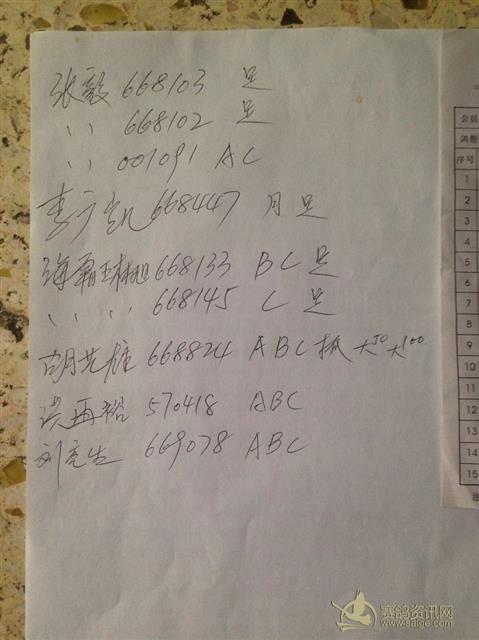 张毅 668103 足
〃 668102 足
〃 001091 AC
李广凯 668447 月足
海霸王林旭 668133 BC足
〃 〃 668145 C足
胡先雄 668824 ABC抓大50大100
洪再裕 570418 ABC
刘亮生 669078 ABC
会员
鸽棚
序号
1
2
3
4
5
6
7
8
9
10
11
12
13
14
15
赛鸽资讯网
www.saige.com